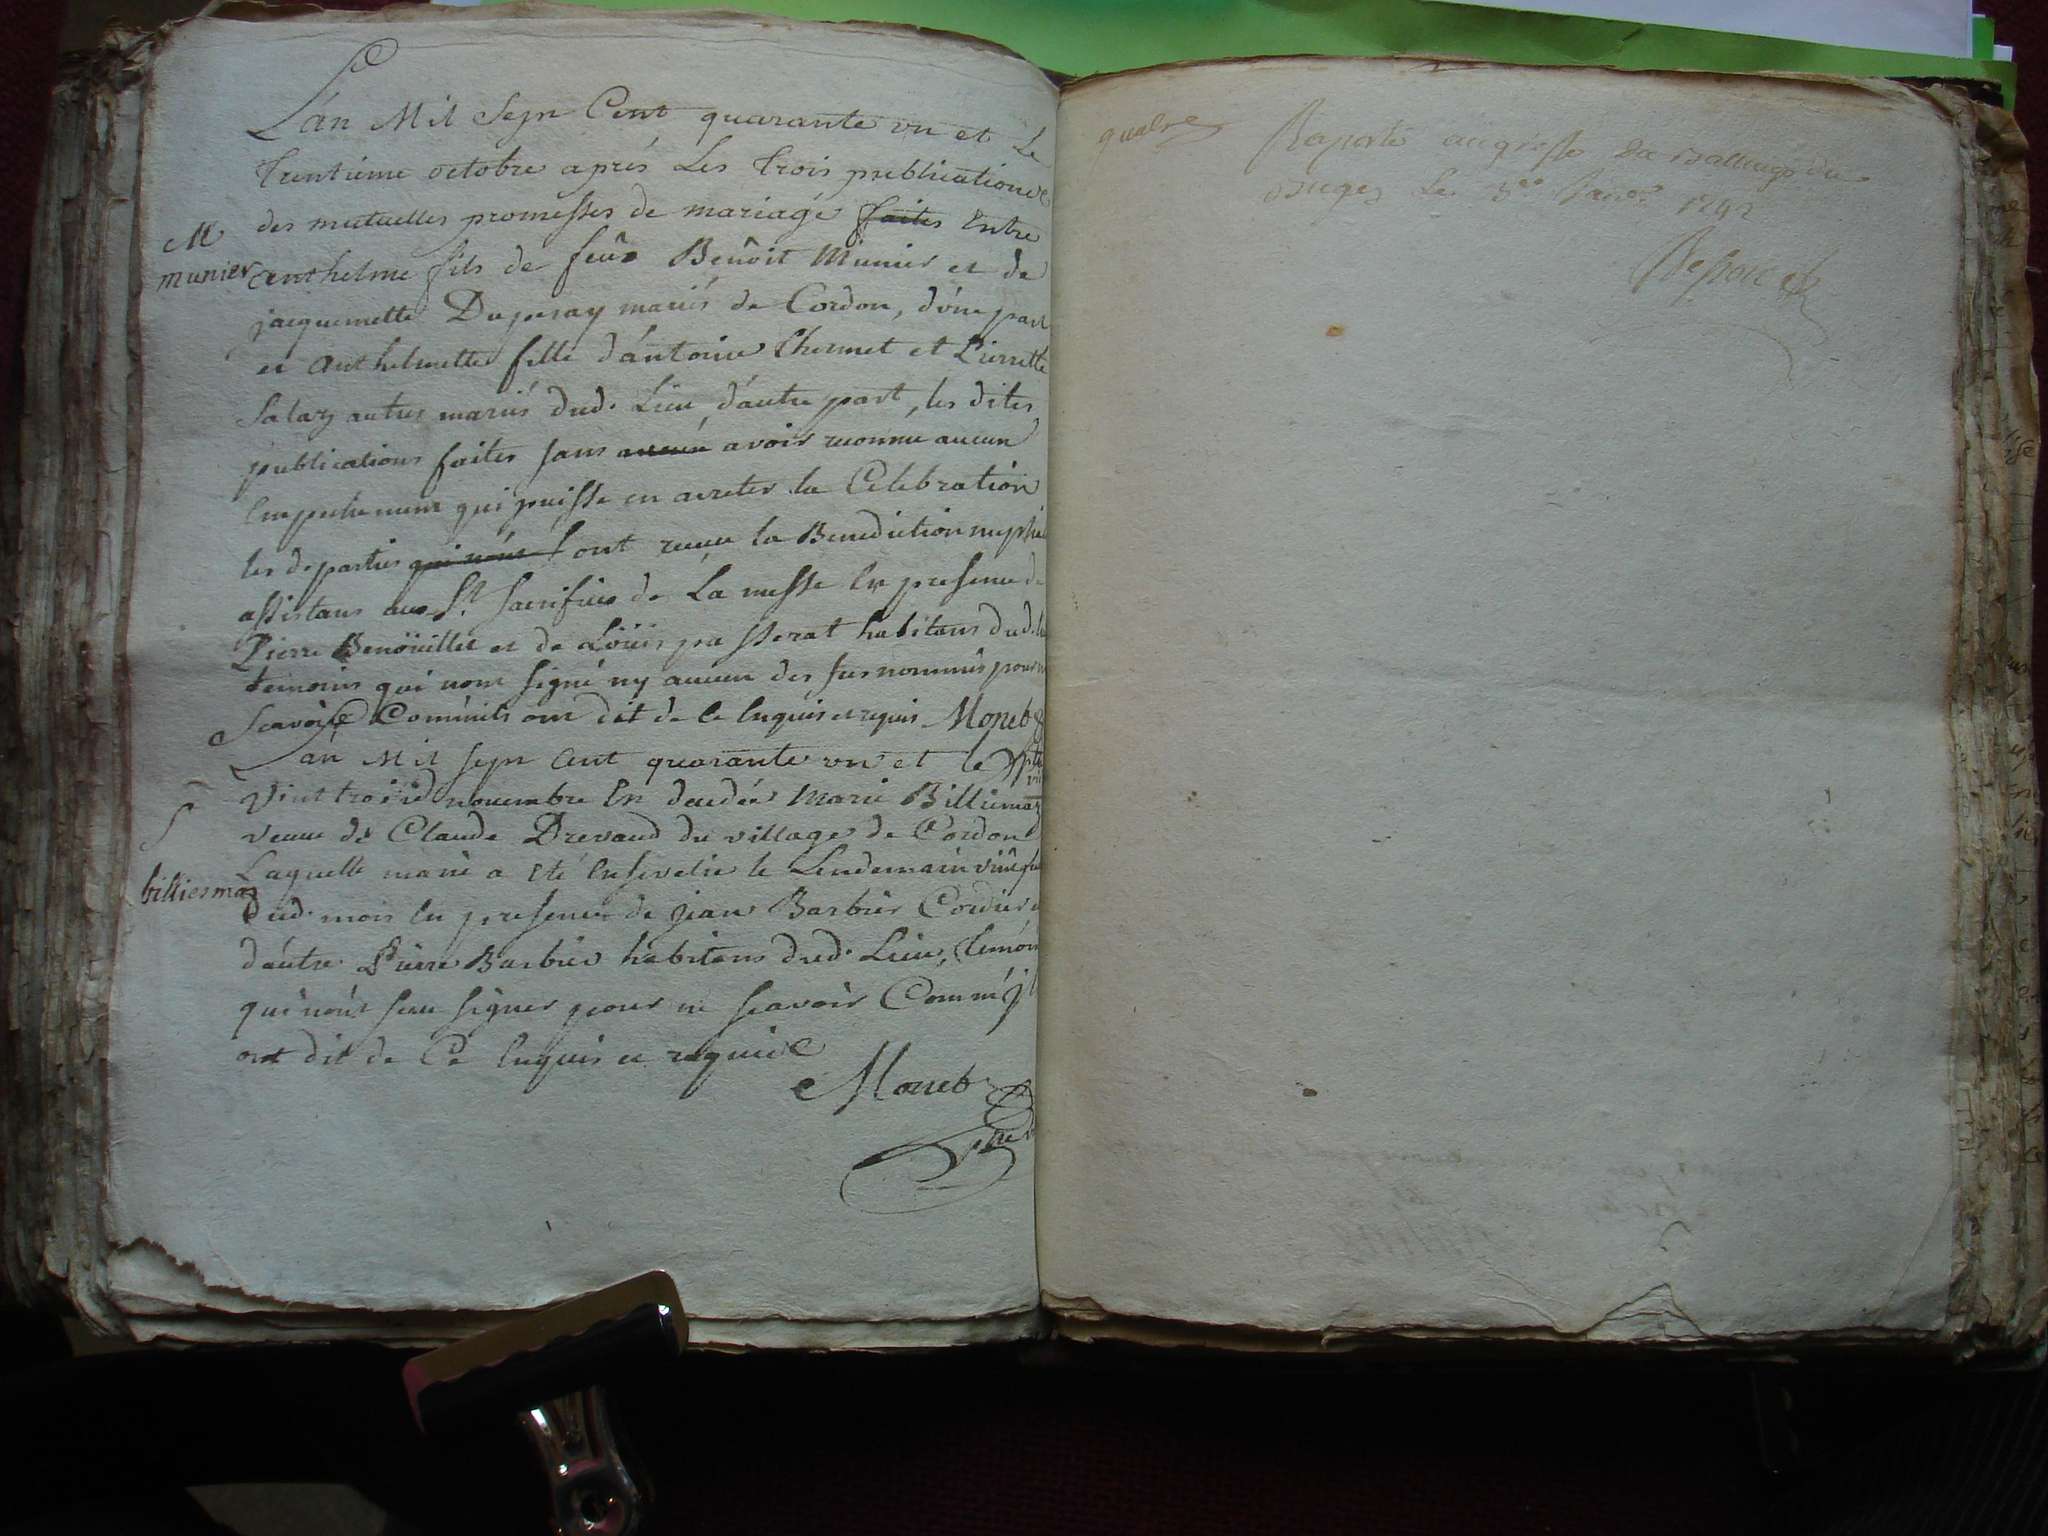 L'an Mil Sept Cent quarante un et Le
trentieme octobre aprés Les trois publications
des mutuelles promesses de mariage faites Entre
M
munier
anthelme fils de feûs Benôit Munier et de
jacquemette Duperay mariés de Cordon, d'úne part
et anthelmette fille d'ántoine Chermet et Pierrette
Salaz autres mariés dud. Lieu, d'áutre part, les dites
publications faites sans aucun avoir reconnu aucun
Empechement qui puisse en arreter la Célébration
les d. parties qui nónt ont receu la Benediction nuptia
assistans au St. Sacrifice de La messe En presence de
Pierre Benöüillet et de Loüis passerat habitans dud.
temoins qui nont signé ny aucun des sus nommés pour
Scavoir Comm'ils ont dit de Ce Enquis et requis Monet
L'an Mil sept Cent quarante un et le
vint trois novembre En decedée Marie Billiemaz
S
billiesmaz
veuve de Claude Drevaud du village de Cordon
Laquelle marie a été Ensevelie le Lendemain
dud. mois En presence de jean Barbier Cordier
d'áutre Pierre Barbier habitans dud. Lieu, temoin
qui nónt sceu signer pour ne scavoir Comm'il
ont dit de Ce Enquis et requis
Monet
quatre
Raporté au greffe du Balliage du
Bugey Le Janv. 1742